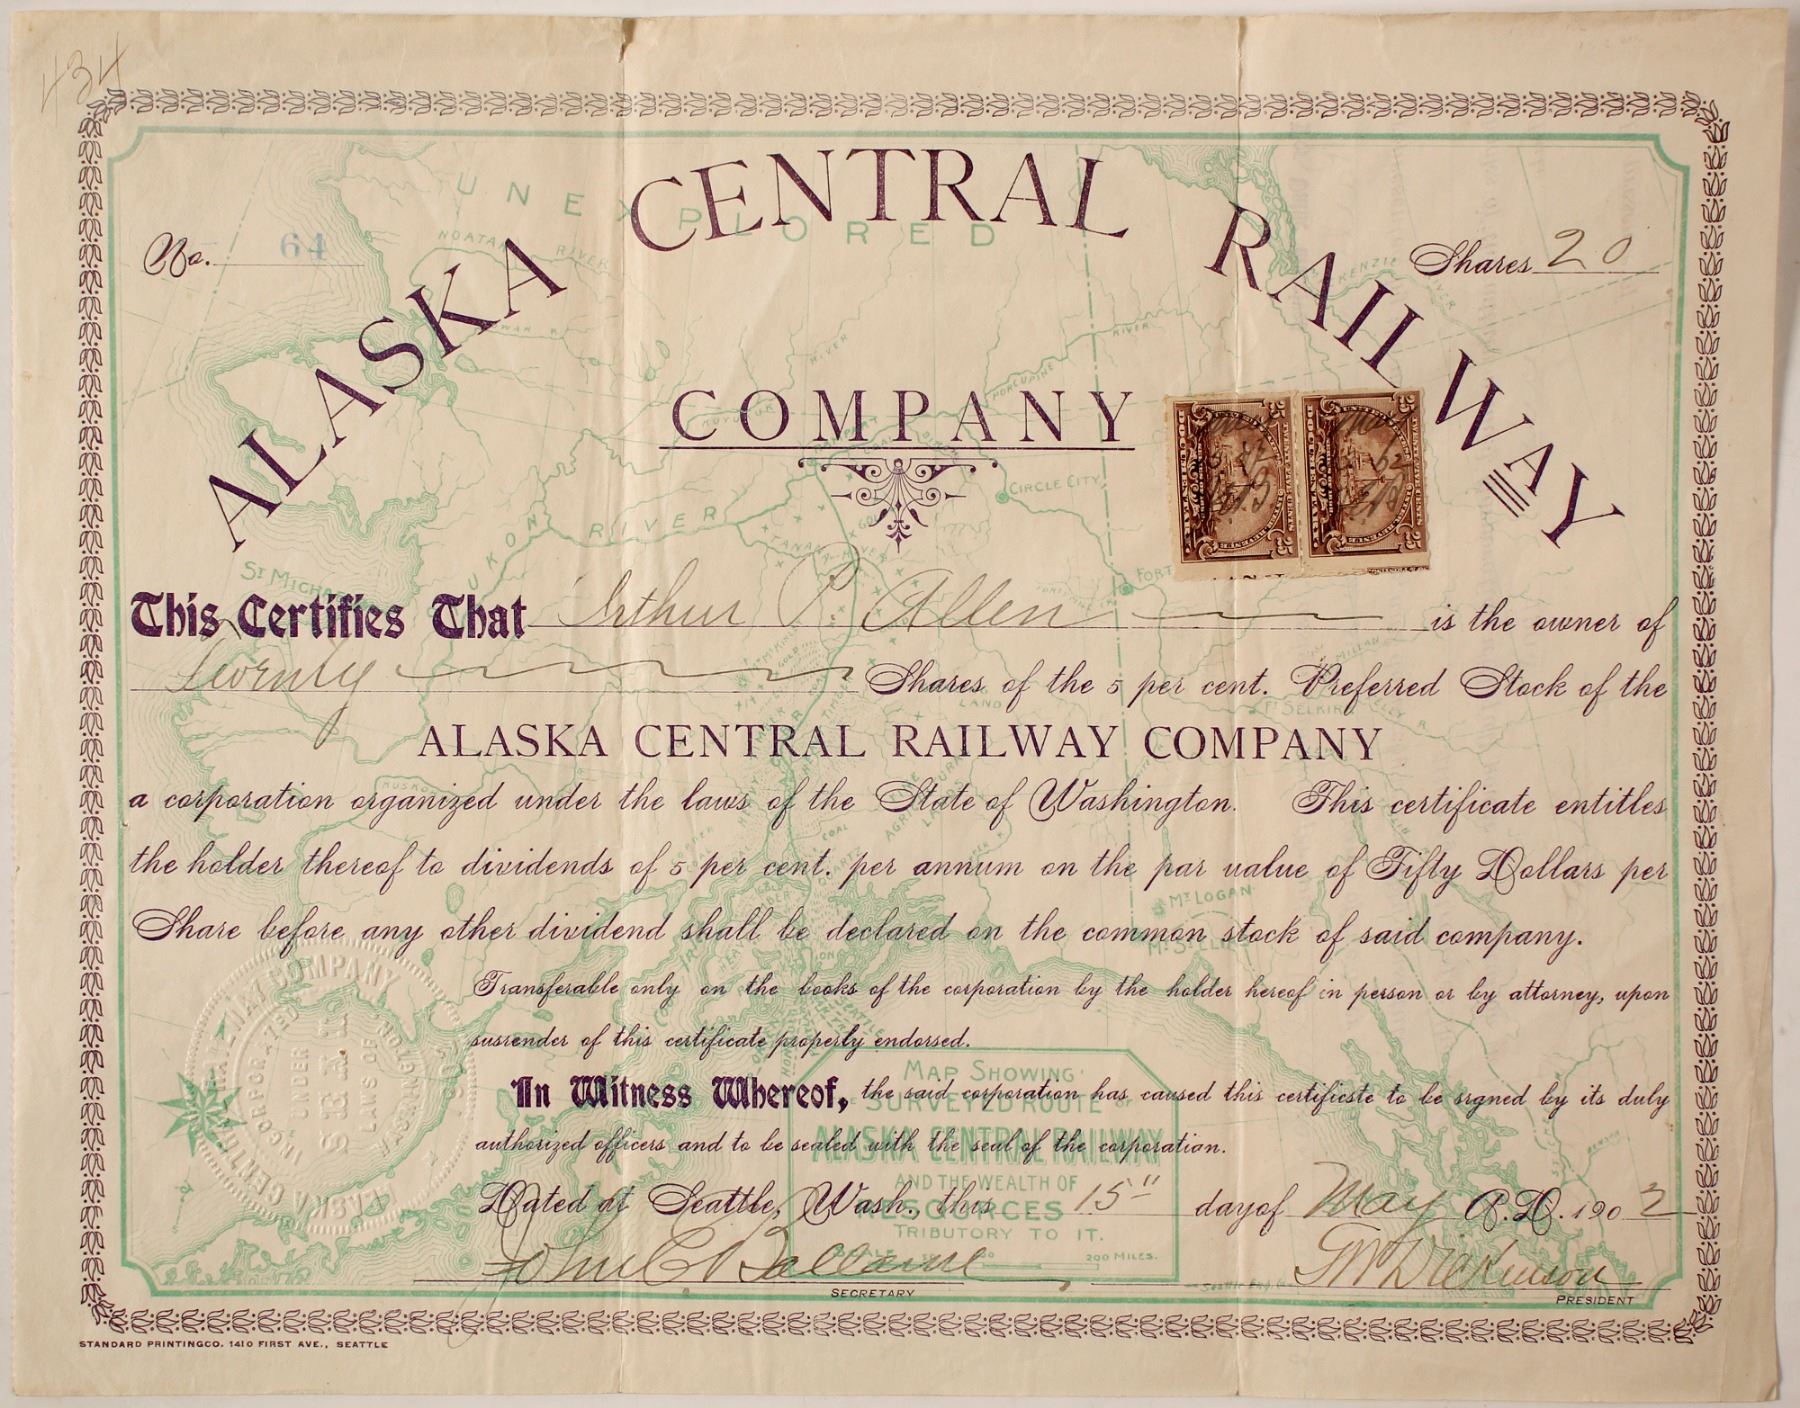 434
ALASKA CENTRAL RAILWAY
No. 64
Shares 20
COMPANY
UNEXPLORED
NOATAK RIVER
PORCUPINE RIVER
CIRCLE CITY
YUKON RIVER
TANANA RIVER
ST MICH
FORT
This Certifies That Arthur P. Allen is the owner of
Twenty Shares of the 5 per cent. Preferred Stock of the
FT SELKIRK
PELLY R.
LAND
ALASKA CENTRAL RAILWAY COMPANY
a corporation organized under the laws of the State of Washington. This certificate entitles
COAL
the holder thereof to dividends of 5 per cent. per annum on the par value of Fifty Dollars per
MT LOGAN
Share before any other dividend shall be declared on the common stock of said company.
Transferable only on the books of the corporation by the holder hereof in person or by attorney, upon
surrender of this certificate properly endorsed.
MAP SHOWING
In Witness Whereof, the said corporation has caused this certificate to be signed by its duly
SURVEYED ROUTE OF
authorized officers and to be sealed with the seal of the corporation.
ALASKA CENTRAL RAILWAY
AND THE WEALTH OF
Dated at Seattle, Wash., this 15" day of May A.D. 1902
RESOURCES
TRIBUTORY TO IT.
200 MILES.
John C Ballaine
GW Dickinson
SECRETARY
PRESIDENT
ALASKA CENTRAL RAILWAY COMPANY
INCORPORATED UNDER LAWS OF
SEAL
STANDARD PRINTING CO. 1410 FIRST AVE., SEATTLE